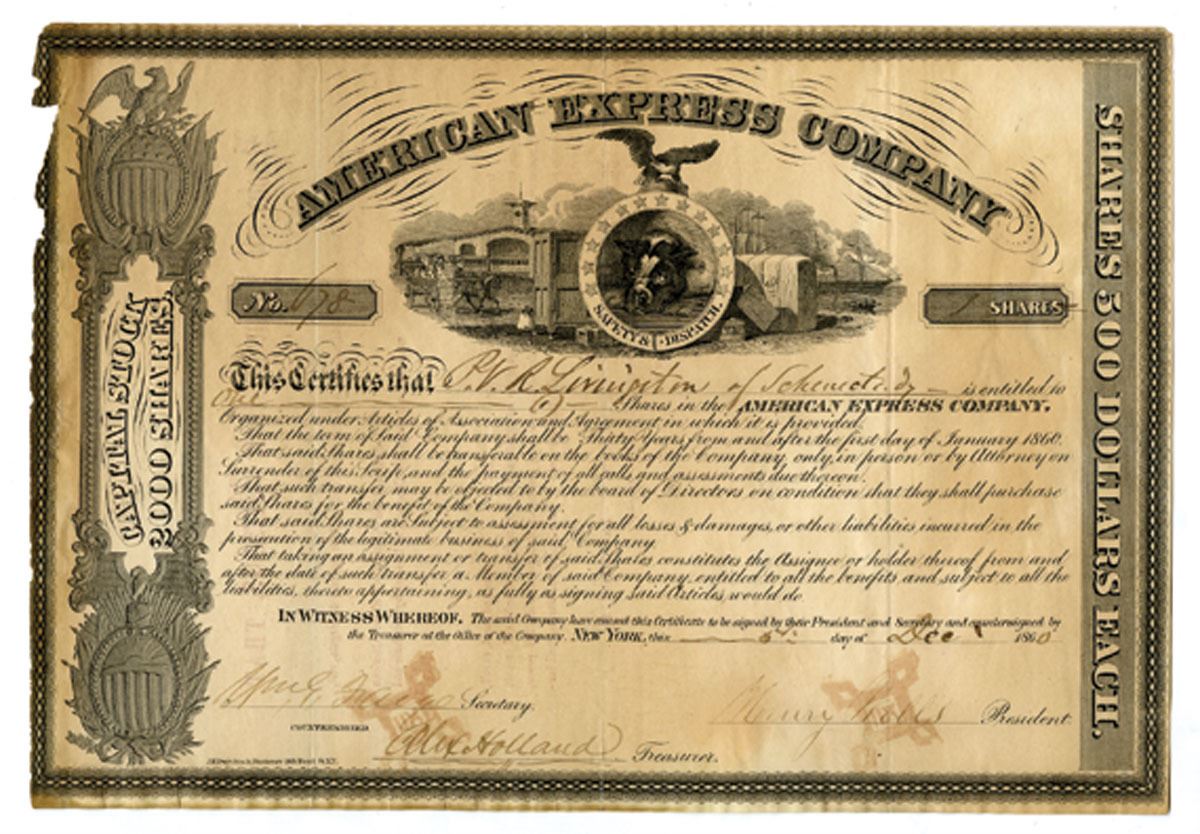 AMERICAN EXPRESS COMPANY
SAFETY & DISPATCH.
No. 678
1 SHARES
CAPITAL STOCK
5000 SHARES
SHARES 500 DOLLARS EACH.
This Certifies that P. V. R. Livingston of Schenectady is entitled to
One Shares in the AMERICAN EXPRESS COMPANY.
Organized under Articles of Association and Agreement in which it is provided.
That the term of Said Company shall be Thirty Years from and after the first day of January 1860.
That said Shares shall be transferable on the books of the Company only, in person or by Attorney on
Surrender of this Scrip, and the payment of all calls and assessments due thereon.
That such transfer may be objected to by the board of Directors on condition that they shall purchase
said Shares for the benefit of the Company.
That said Shares are Subject to assessment for all losses & damages, or other liabilities incurred in the
prosecution of the legitimate business of said Company
That taking an assignment or transfer of said Shares constitutes the Assignee or holder thereof from and
after the date of such transfer a Member of said Company, entitled to all the benefits and subject to all the
liabilities, thereto appertaining, as fully as signing said Articles would do.
IN WITNESS WHEREOF. The said Company have caused this Certificate to be signed by their President and Secretary and countersigned by
the Treasurer at the Office of the Company. NEW YORK, this 5th day of Dec 1860
Secretary.
Henry Wells President.
COUNTERSIGNED
Alex Holland Treasurer.